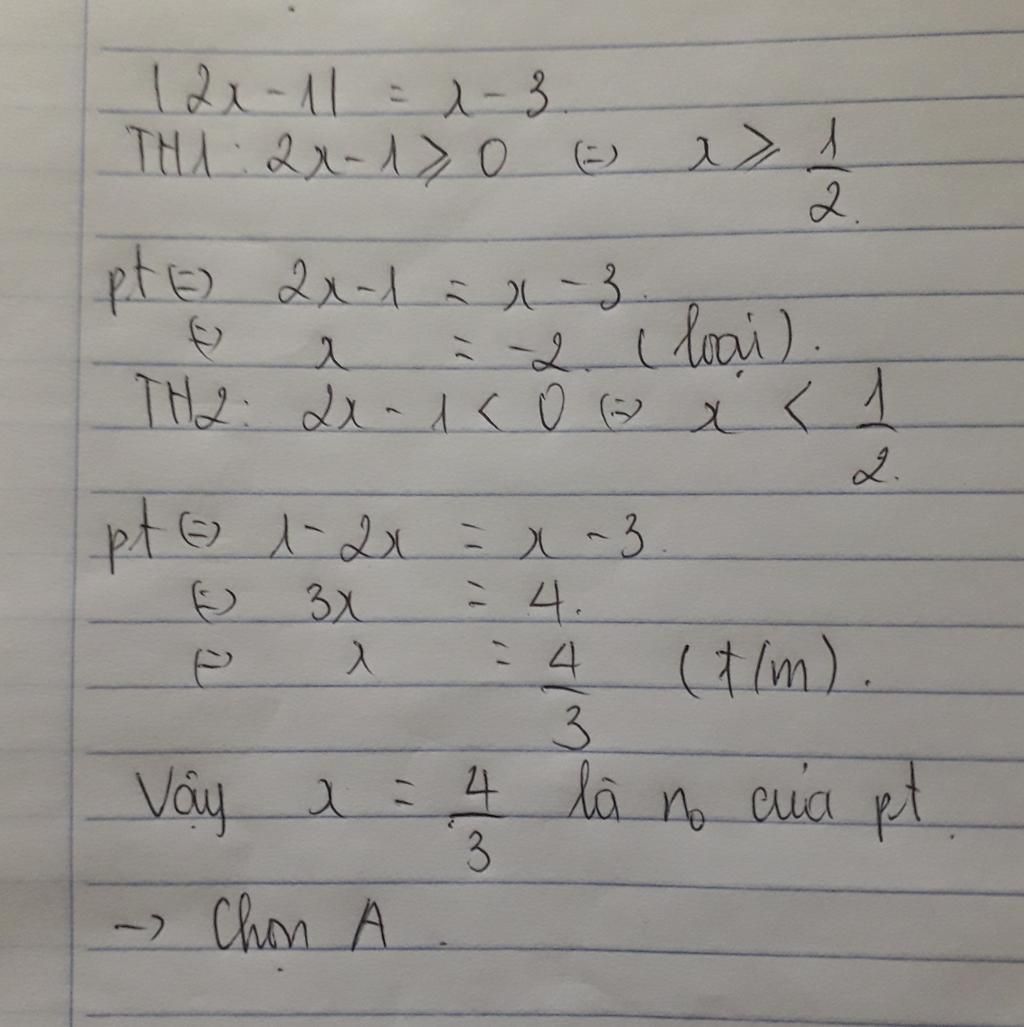 |2x-1| = x-3.
TH1: 2x-1 ⩾ 0 (=) x ⩾ 1/2.
pt (=) 2x-1 = x-3.
(=) x = -2. (loại).
TH2: 2x-1 < 0 (=) x < 1/2.
pt (=) 1-2x = x-3.
(=) 3x = 4.
(=) x = 4/3 (t/m).
Vậy x = 4/3 là n₀ của pt.
-> Chọn A.